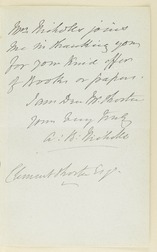 Mrs Nicholls joins
me in thanking you
for your kind offer
of Books or papers.
I am Dear Mr Shorter
Yours very truly
A. B. Nicholls
Clement Shorter Esqr.